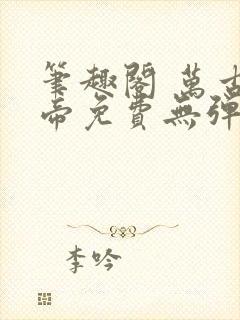 筆趣閣 萬古
帝免費無彈
李吟